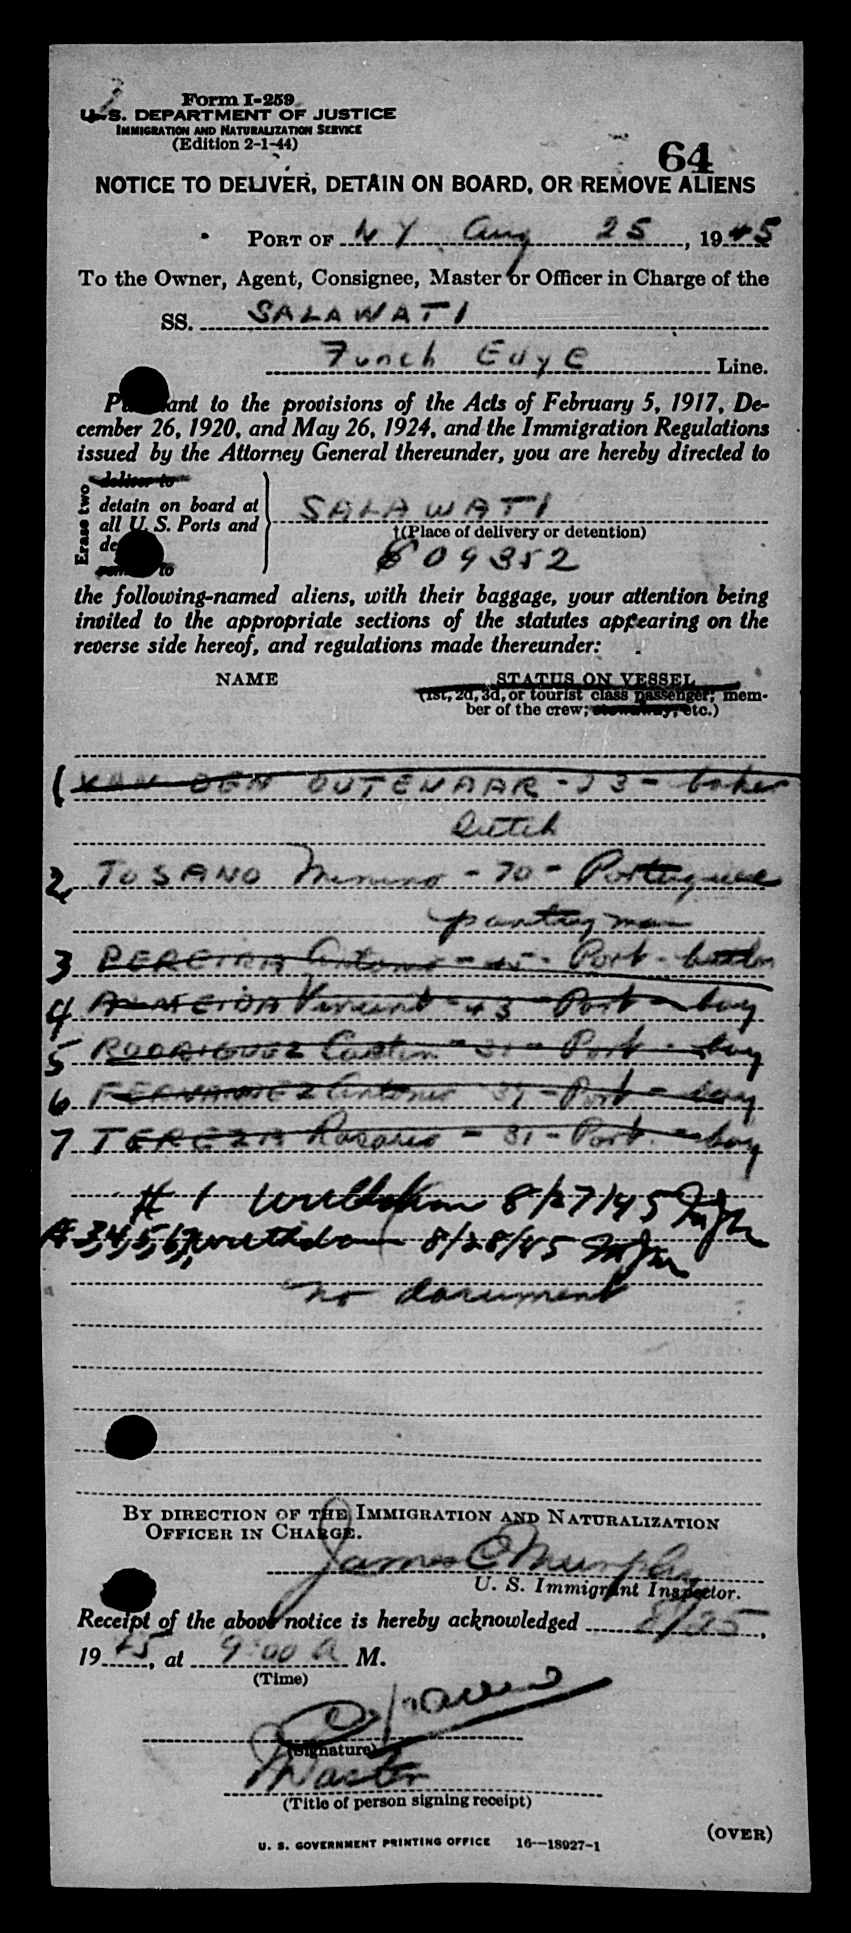 Form I-259
U. S. DEPARTMENT OF JUSTICE
IMMIGRATION AND NATURALIZATION SERVICE
(Edition 2-1-44)
64
NOTICE TO DELIVER, DETAIN ON BOARD, OR REMOVE ALIENS
PORT OF N Y Aug 25, 1945
To the Owner, Agent, Consignee, Master or Officer in Charge of the
SS. SALAWATI
Funch Edye Line.
Pursuant to the provisions of the Acts of February 5, 1917, De-
cember 26, 1920, and May 26, 1924, and the Immigration Regulations
issued by the Attorney General thereunder, you are hereby directed to
Erase two
deliver to
detain on board at SALAWATI
all U. S. Ports and †(Place of delivery or detention)
609352
the following-named aliens, with their baggage, your attention being
invited to the appropriate sections of the statutes appearing on the
reverse side hereof, and regulations made thereunder:
NAME STATUS ON VESSEL
(1st, 2d, 3d, or tourist class passenger; mem-
ber of the crew; stowaway, etc.)
1 VAN DEN OUTENAAR - 23 - baker
Dutch
2 TOSANO Menino - 70 - Portuguese
pantryman
3 PEREIRA Antonio - 45 - Port - butler
4 ALMEIDA Vincent - 43 - Port - boy
5 RODRIGUEZ - 31 - Port - boy
6 FERNANDEZ Antonio - Port - boy
7 TEREZA Rosario - 31 - Port. - boy
# 1 withdrawn 8/27/45
# 3,4,5,6,7, withdrawn 8/28/45
no document
BY DIRECTION OF THE IMMIGRATION AND NATURALIZATION
OFFICER IN CHARGE.
James C Murphy
U. S. Immigrant Inspector.
Receipt of the above notice is hereby acknowledged 8/25,
1945, at 9:00 A M.
(Time)
(Signature)
Master
(Title of person signing receipt)
(OVER)
U. S. GOVERNMENT PRINTING OFFICE 16—18927-1